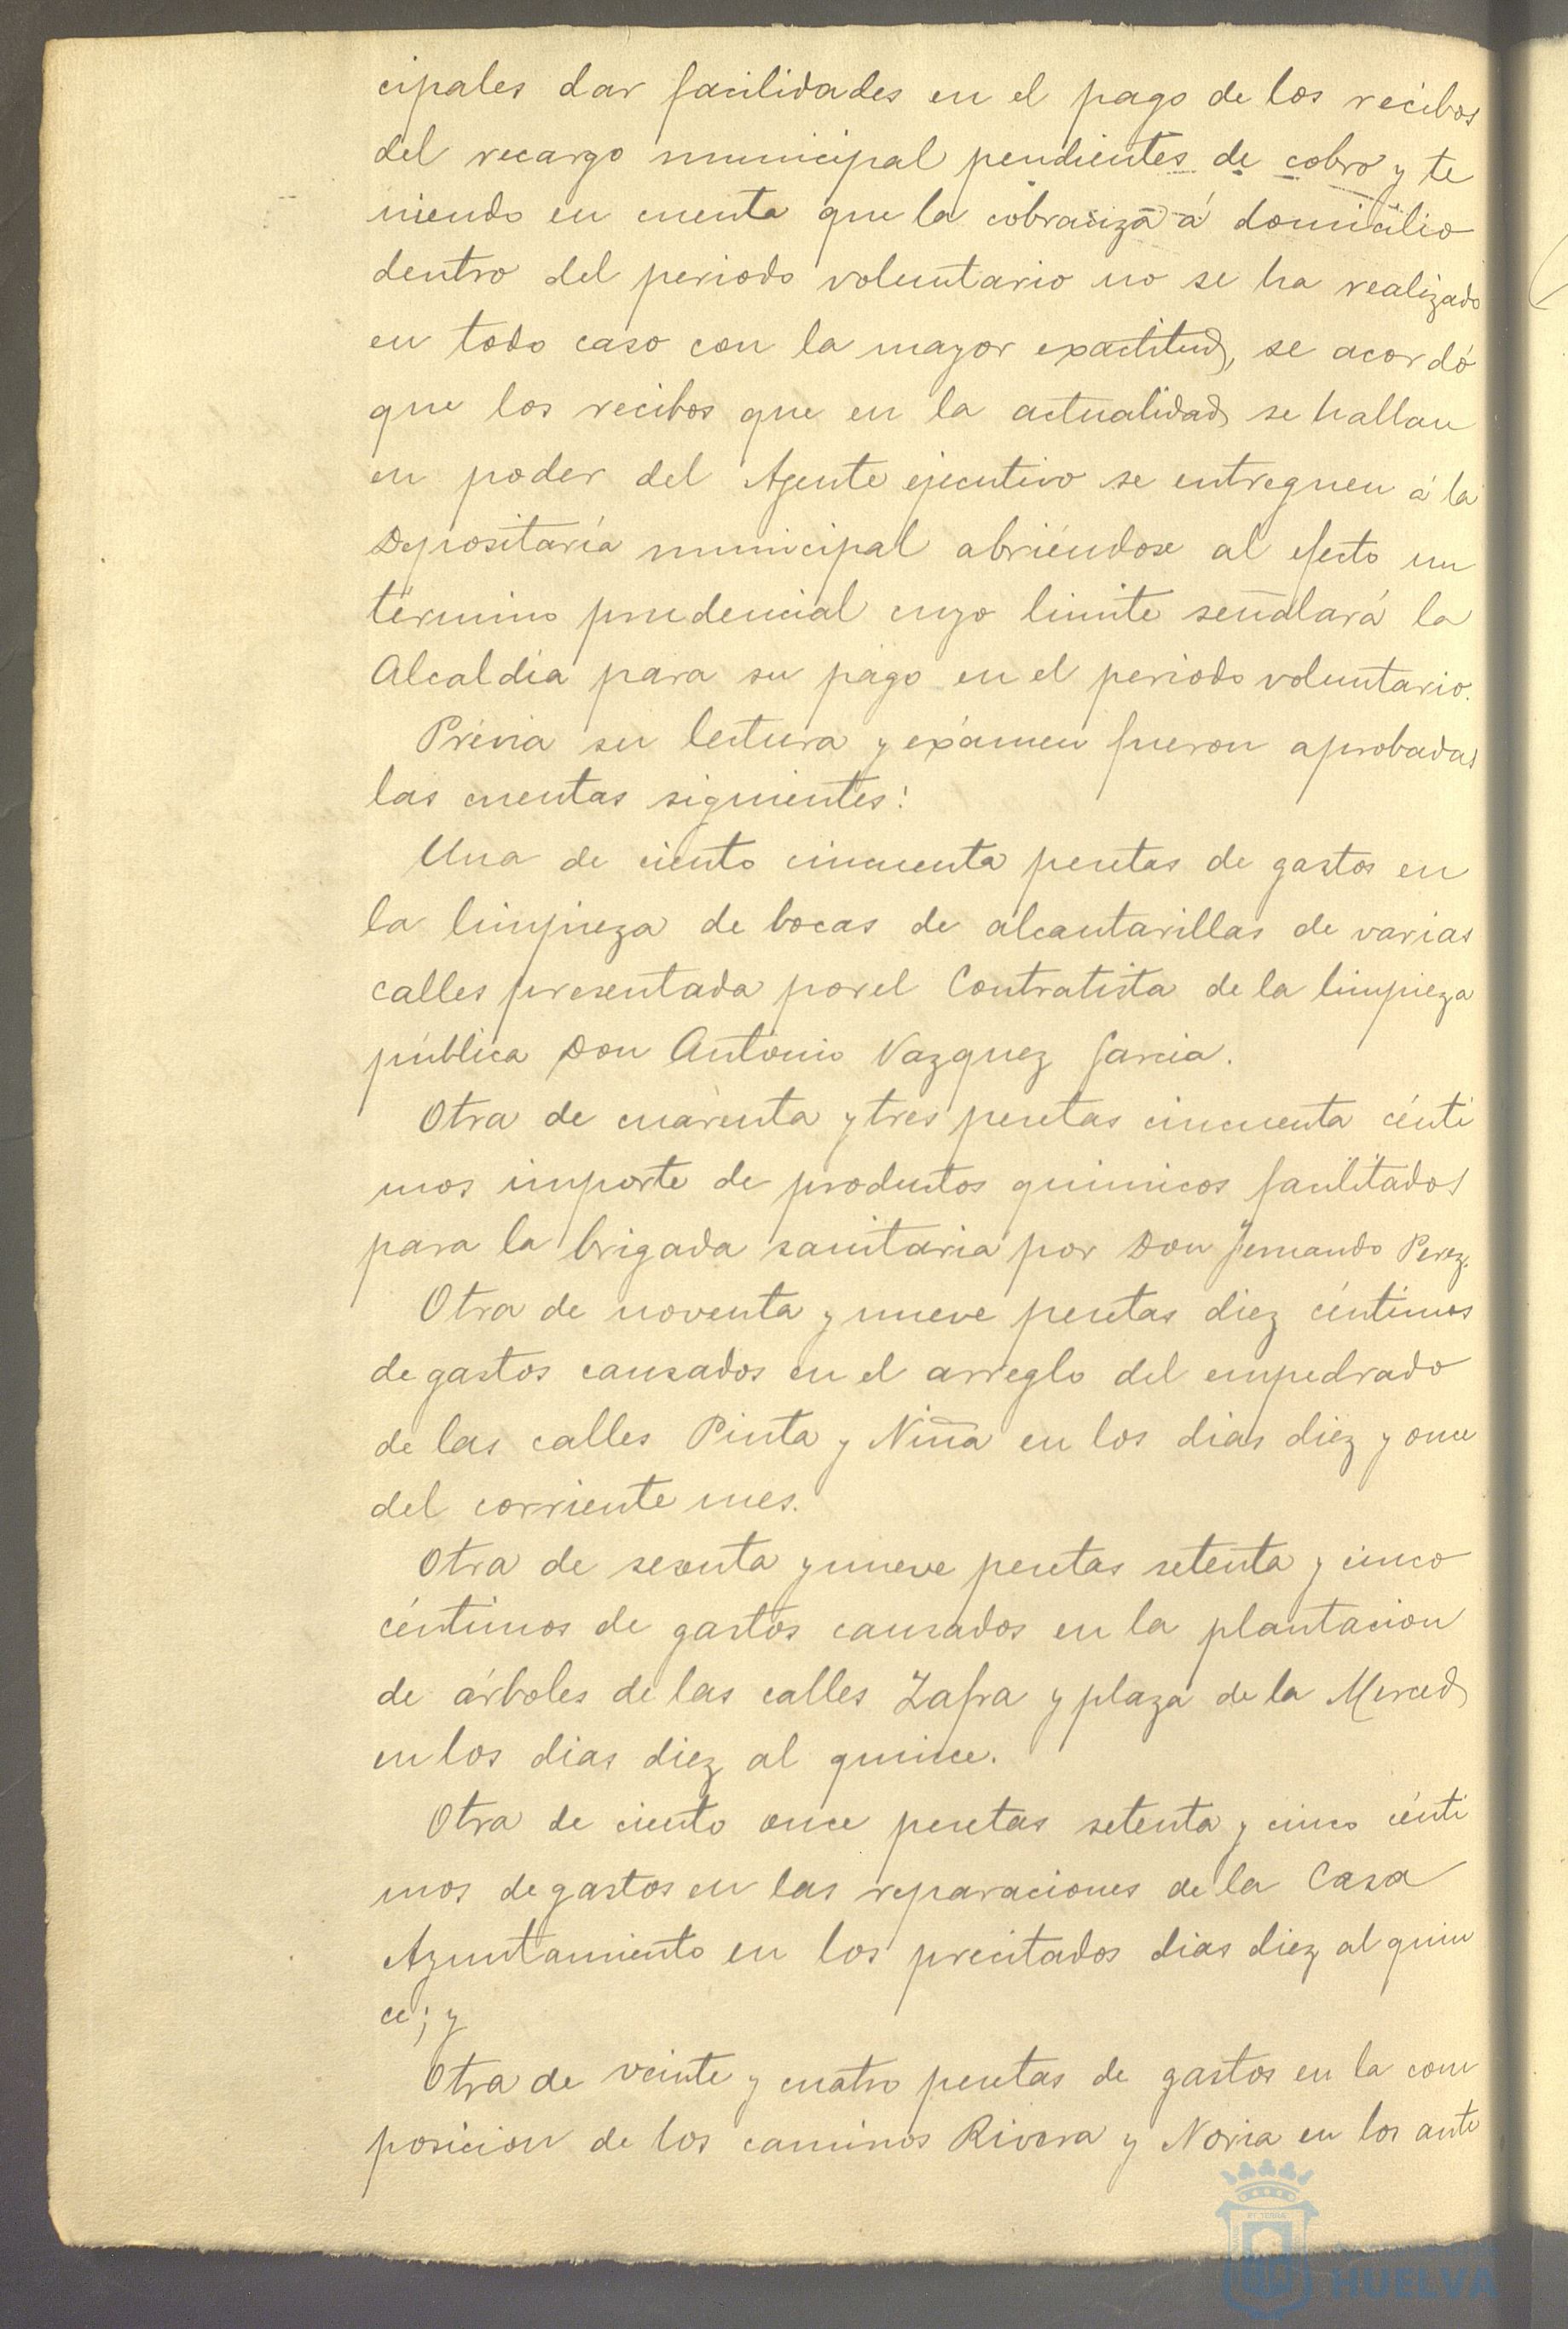 cipales dar facilidades en el pago de los recibos
del recargo municipal pendientes de cobro y te
niendo en cuenta que la cobranza á domicilio
dentro del periodo voluntario no se ha realizado
en todo caso con la mayor exactitud, se acordó
que los recibos que en la actualidad se hallan
en poder del Agente ejecutivo se entreguen á la
Depositaría municipal abriéndose al efecto un
término prudencial cuyo limite señalará la
Alcaldia para su pago en el periodo voluntario.
Prévia su lectura y exámen fueron aprobadas
las cuentas siguientes:
Una de ciento cincuenta pesetas de gastos en
la limpieza de bocas de alcantarillas de varias
calles presentada por el Contratista de la limpieza
pública Don Antonio Vazquez Garcia.
Otra de cuarenta y tres pesetas cincuenta cénti
mos importe de productos quimicos facilitados
para la brigada sanitaria por Don Fernando Perez.
Otra de noventa y nueve pesetas diez céntimos
de gastos causados en el arreglo del empedrado
de las calles Pinta y Niña en los dias diez y once
del corriente mes.
Otra de sesenta y nueve pesetas setenta y cinco
céntimos de gastos causados en la plantacion
de árboles de las calles Zafra y plaza de la Merced
en los dias diez al quince.
Otra de ciento once pesetas setenta y cinco cénti
mos de gastos en las reparaciones de la Casa
Ayuntamiento en los precitados dias diez al quin
ce; y
Otra de veinte y cuatro pesetas de gastos en la com
posicion de los caminos Rivera y Noria en los ante
HUELVA